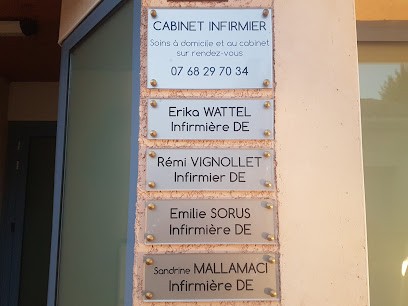 CABINET INFIRMIER
Soins à domicile et au cabinet
sur rendez-vous
07 68 29 70 34
Erika WATTEL
Infirmière DE
Rémi VIGNOLLET
Infirmier DE
Emilie SORUS
Infirmière DE
Sandrine MALLAMACI
Infirmière DE